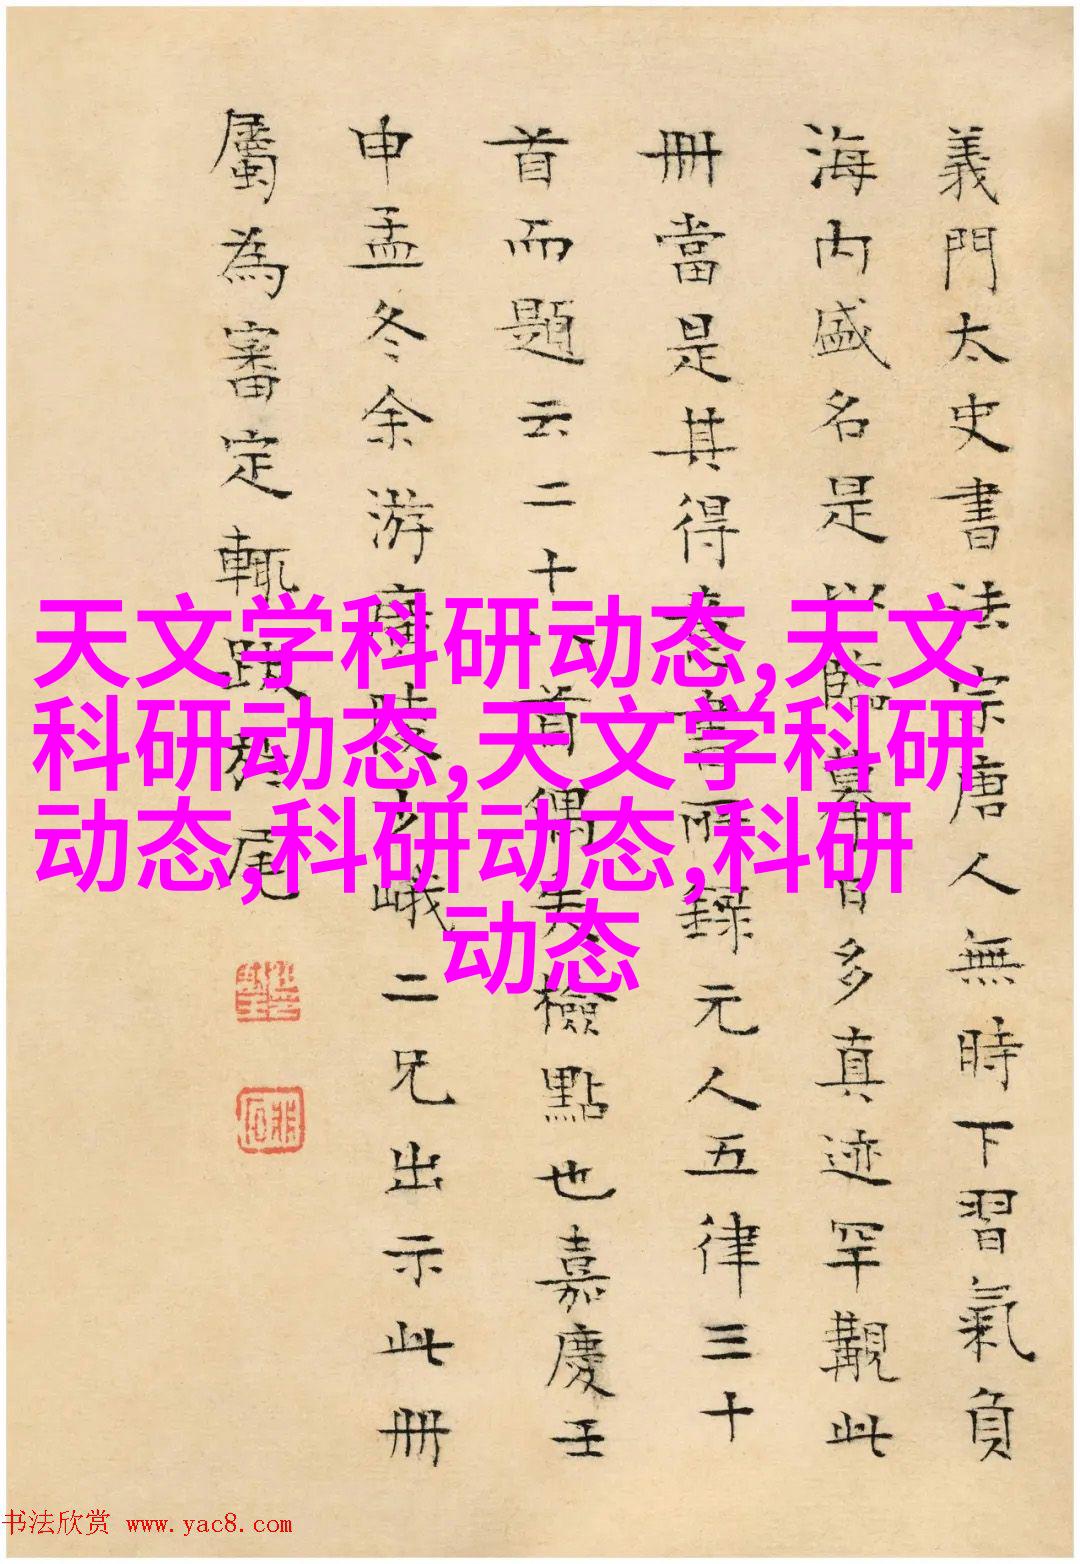 義門太史書法宗唐人無時下習氣負
海内盛名是以臨摹日多真迹罕觀此
冊當是其得意書所録元人五律三十
首而題云二十首偶失檢點也嘉慶壬
申孟冬余游陵少峨二兄出示此冊
屬為審定輒跋於尾
天文学科研动态,天文
科研动态,天文学科研
动态,科研动态,科研
动态
书法欣赏 www.yac8.com